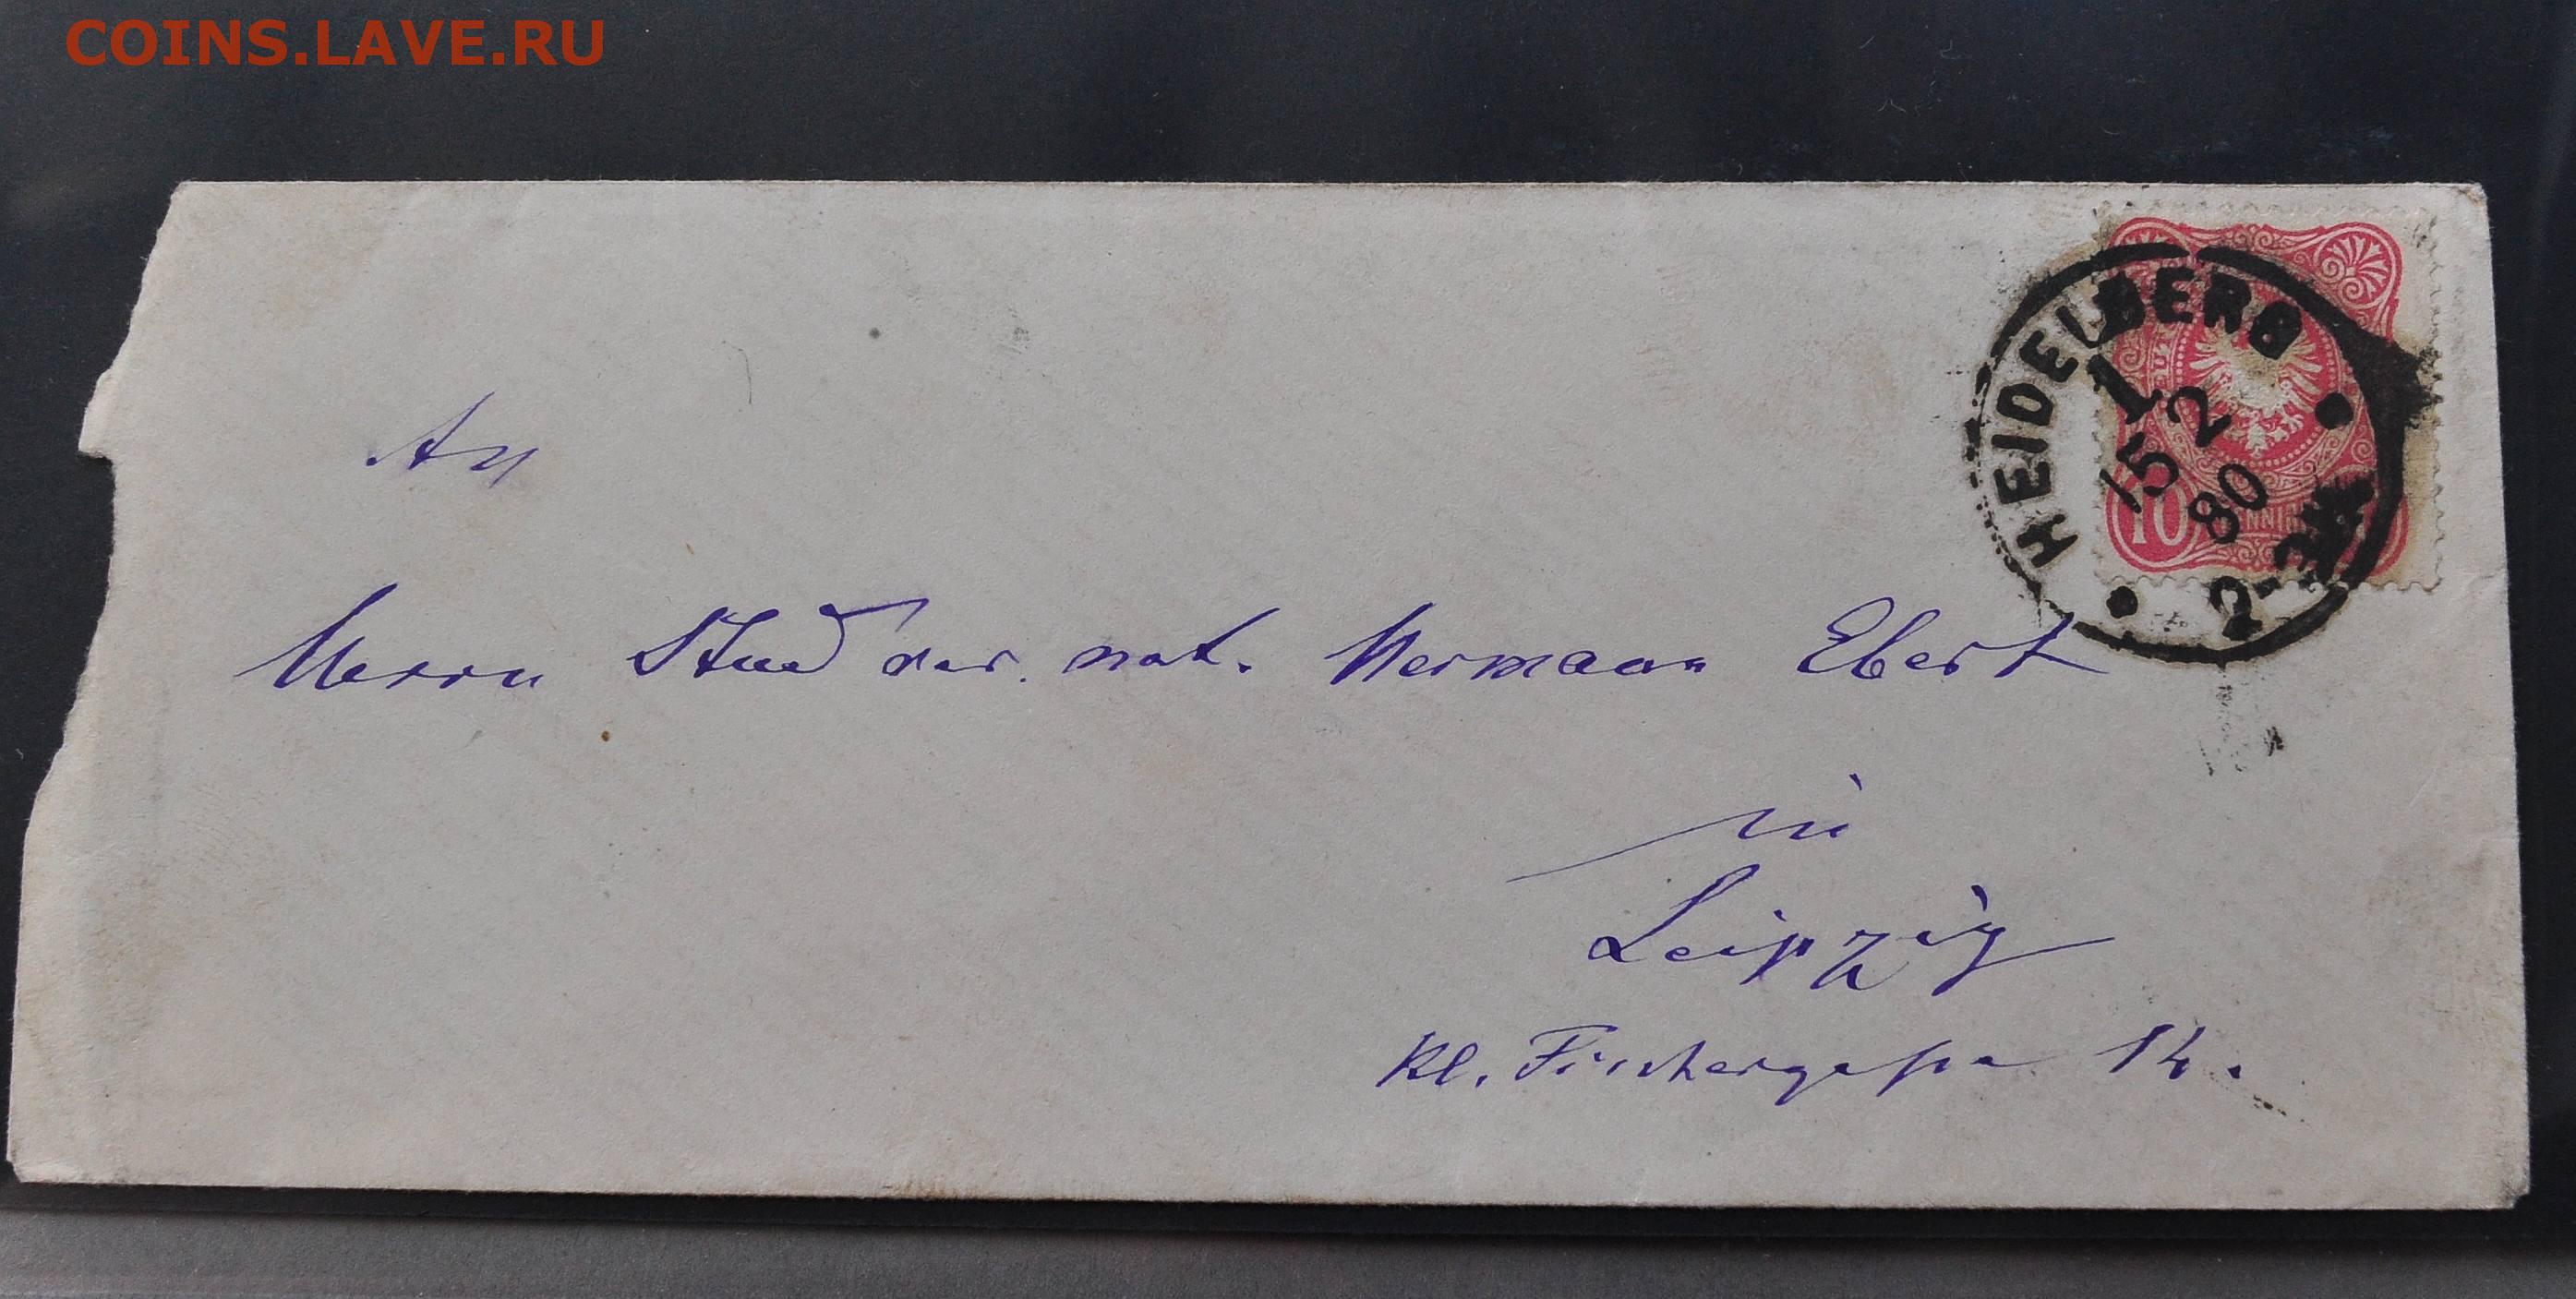 COINS.LAVE.RU
HEIDELBERG
1
15 2
80
2-3N
10 PFENNIG
An
Herrn Stud rer. nat. Hermann Ebert
in
Leipzig
Kl. Fischergasse 14.